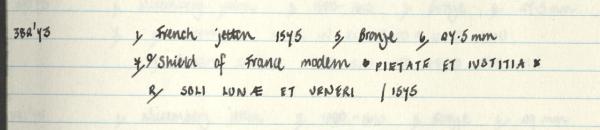 382'43 1, French jetton 1575 5, Bronze 6, 27.5mm
7, O/ Shield of France modern * PIETATE ET IUSTITIA *
R/ SOLI LUNÆ ET VENERI / 1575